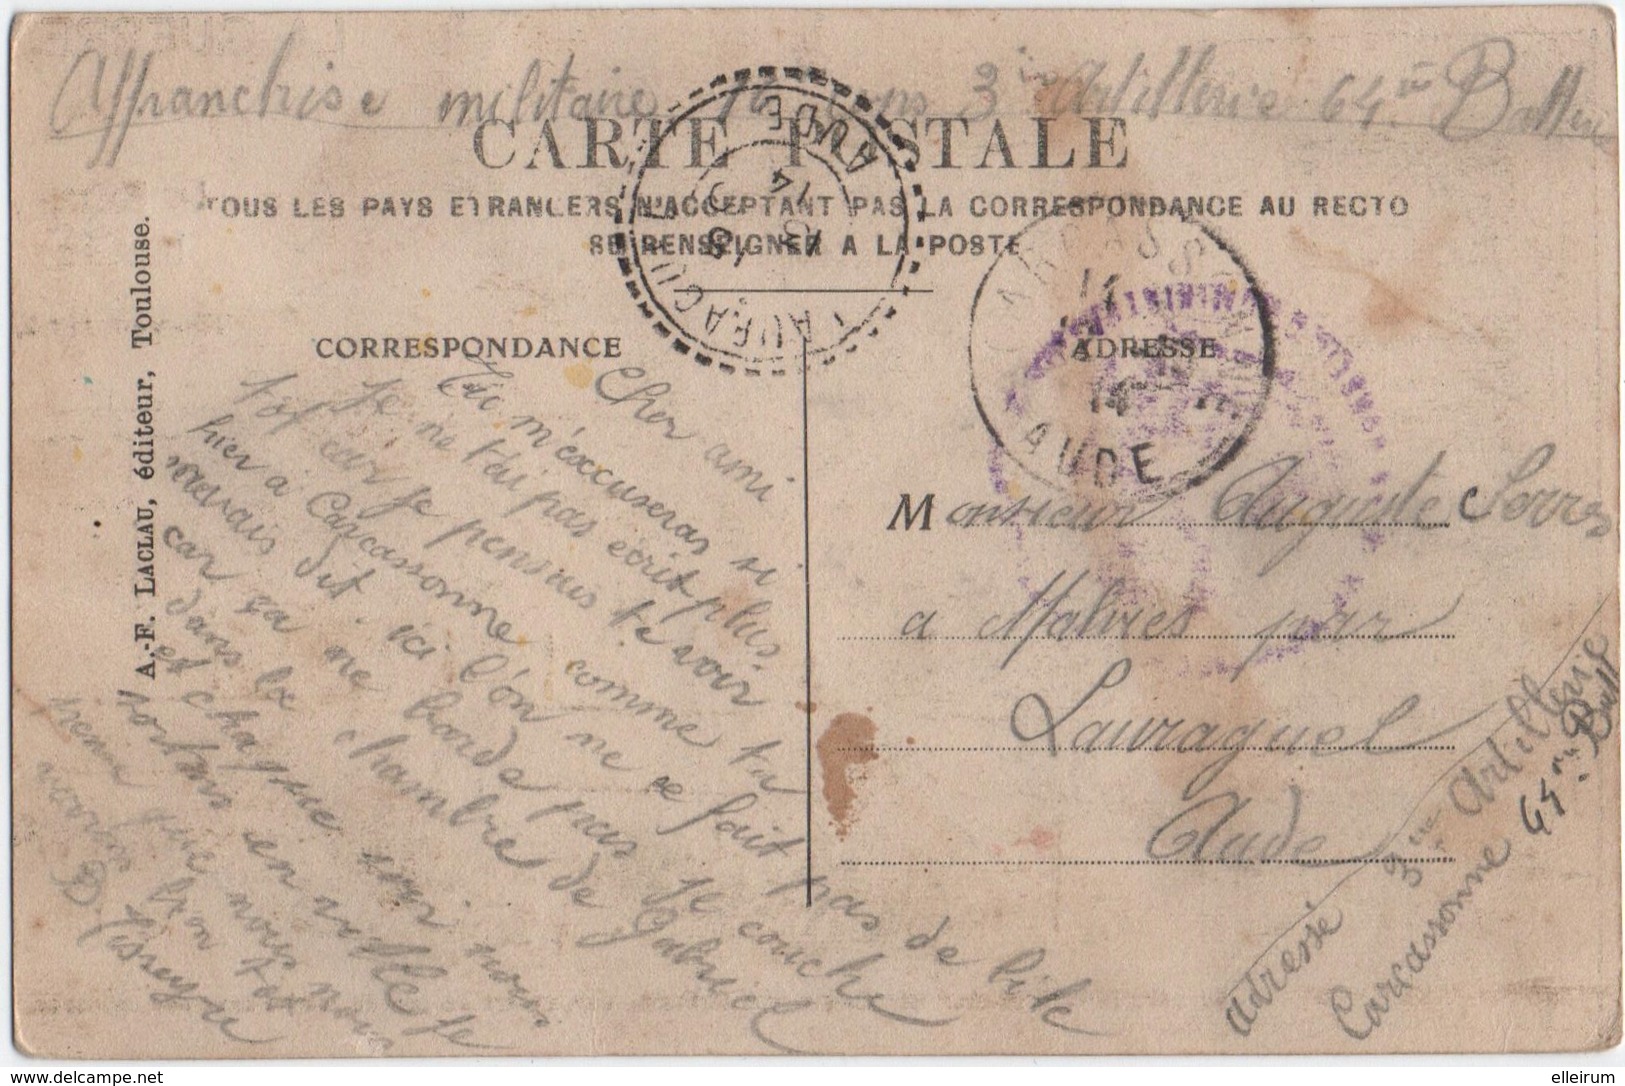 Affranchise militaire 3 Artillerie 64 Battrie
CARTE POSTALE
TOUS LES PAYS ETRANGERS N'ACCEPTANT PAS LA CORRESPONDANCE AU RECTO
SE RENSEIGNER A LA POSTE
A.-F. LACLAU, éditeur, Toulouse.
CORRESPONDANCE
ADRESSE
LAURAGUEL
AUDE
CARCASSONNE
AUDE
Cher ami
Tu m'éxcuseras si
Je ne t'ai pas ecrit plus
tot car je pensais te voir
hier à Carcassonne comme tu
m'avais dit. ici l'on ne se fait pas de bile
car ça ne barde pas Je couche
dans la chambre de Gabriel
et chaque soir nous
sortons en ville Je
que nous nous
bien tot
Monsieur Auguste Serres
a Malvies par
Lauraguel
Aude
adressé 3me Artillerie
Carcassonne 64me Batt
elleirum